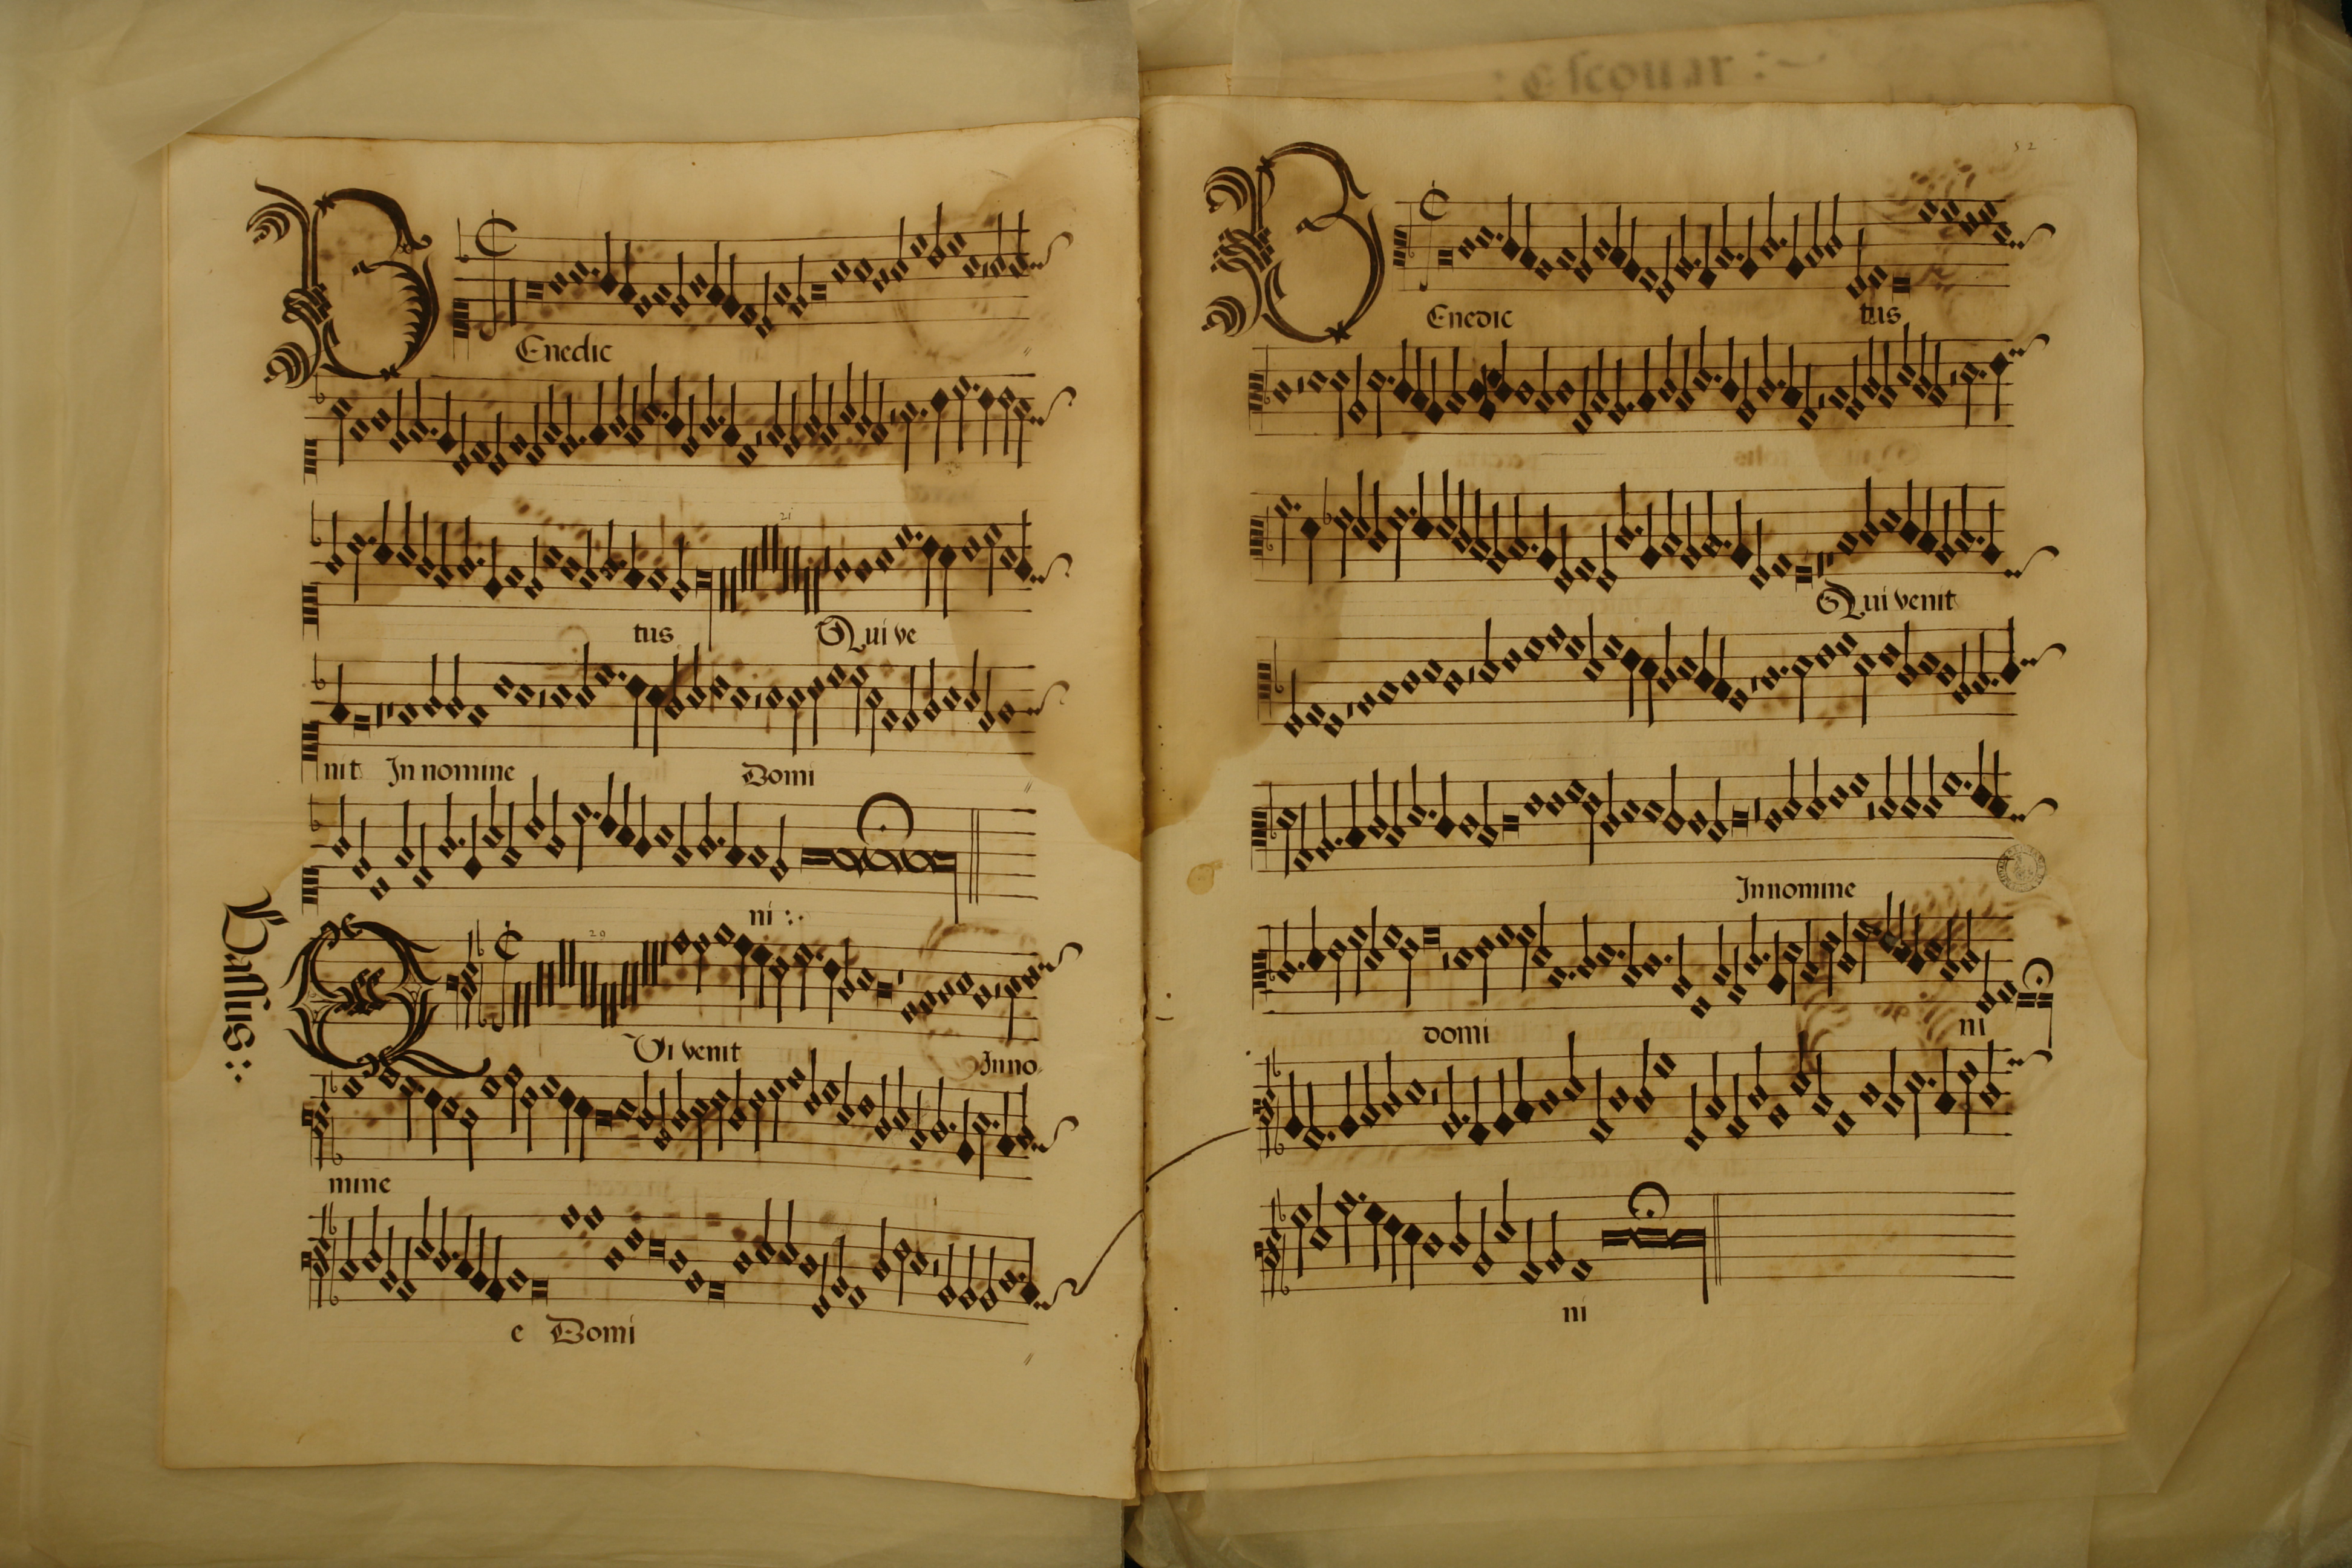 BEnedic
21
tus Qui ve
nit In nomine Domi
ni :.
Bassus :.
20
QVi venit Inno
mine
e Domi
: Escouar :~
52
BEnedic tus
Qui venit
In nomine
domi ni
ni